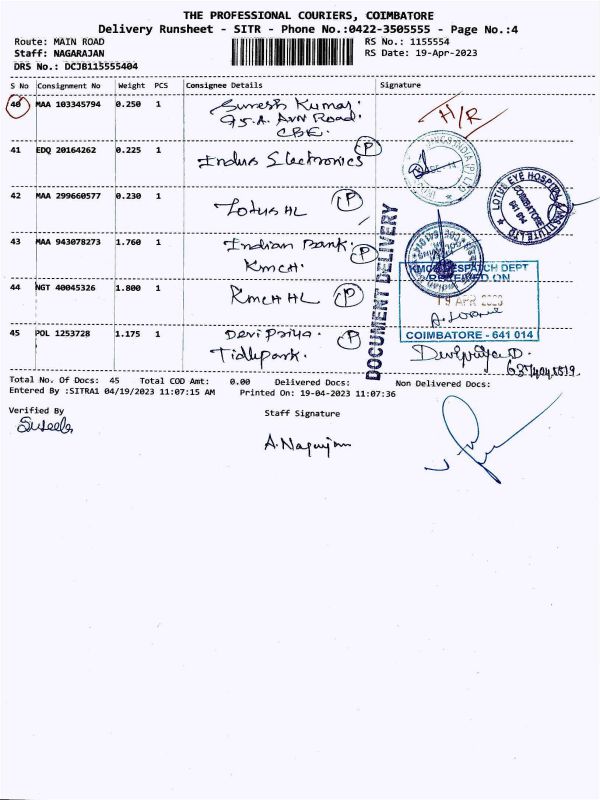 THE PROFESSIONAL COURIERS, COIMBATORE
Delivery Runsheet - SITR - Phone No.:0422-3505555 - Page No.:4
Route: MAIN ROAD
RS No.: 1155554
Staff: NAGARAJAN
RS Date: 19-Apr-2023
DRS No.: DCJB115555404
S No Consignment No Weight PCS Consignee Details Signature
40 MAA 103345794 0.250 1 Suresh Kumar.
H/R
95.A. Avv Road.
CBE.
41 EDQ 20164262 0.225 1 Indus Electronics P
42 MAA 299660577 0.230 1 Lotus HL P
LOTUS EYE HOSPITAL & INSTITUTE LTD
COIMBATORE
641 014
43 MAA 943078273 1.760 1 Indian Bank. P
KMCH.
DOCUMENT DELIVERY
44 NGT 40045326 1.800 1 KMCH HL P
KMCH DESPATCH DEPT
RECEIVED ON
19 APR
COIMBATORE - 641 014
45 POL 1253728 1.175 1 Devi Priya. P
Tidlpark.
Devipriya D.
Total No. Of Docs: 45 Total COD Amt: 0.00 Delivered Docs: Non Delivered Docs:
Entered By :SITRA1 04/19/2023 11:07:15 AM Printed On: 19-04-2023 11:07:36
Verified By
Staff Signature
Suseela
A. Nagarajan